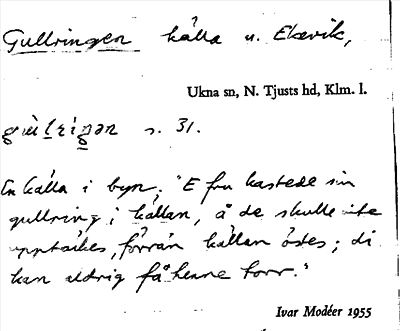 Gullringen källa u. Ekevik,
Ukna sn, N. Tjusts hd, Klm. l.
s. 31.
En källa i byn. "E fru kastede sin
gullring i källan, å de skulle inte
upptäckes, förrän källan östes; di
kan aldrig få henne torr."
Ivar Modéer 1955